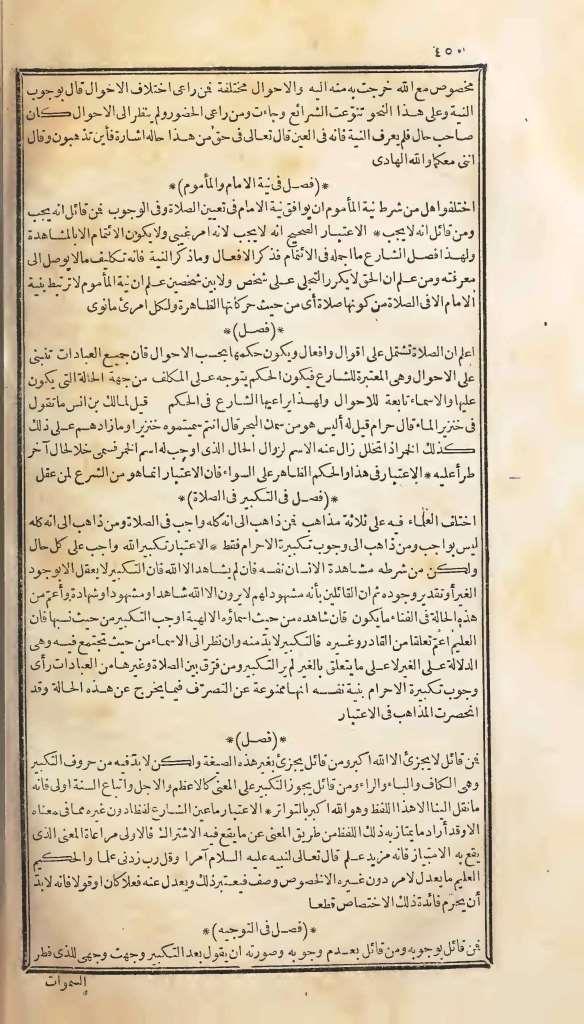 ٤٥٠
مخصوص مع الله خرجت به منه اليه والاحوال مختلفة فمن راعى اختلاف الاحوال قال بوجوب
النية وعلى هذا النحو تنوّعت الشرائع وجاءت ومن راعى الحضور ولم ينظر الى الاحوال كان
صاحب حال فلم يعرف النية فانه فى العين قال تعالى فى حق من هذا حاله اشارة فأين تذهبون وقال
اننى معكما والله الهادى
*(فصل فى نية الامام والمأموم)*
اختلفوا هل من شرط نية المأموم ان يوافق نية الامام فى تعيين الصلاة وفى الوجوب فمن قائل انه يجب
ومن قائل انه لا يجب * الاعتبار الصحيح انه لا يجب لانه امر غيبى ولا يكون الائتمام الا بالمشاهدة
ولهذا فصل الشارع ما اجله فى الائتمام فذكر الافعال وما ذكر النية فانه تكليف ما لا يوصل الى
معرفته ومن علم ان الحق لا يكرر التجلى على شخص ولا بين شخصين علم ان نية المأموم لا ترتبط بنية
الامام الا فى الصلاة من كونها صلاة أى من حيث حركاتها الظاهرة ولكل امرئ مانوى
*(فصل)*
اعلم ان الصلاة تشتمل على اقوال وافعال ويكون حكمها بحسب الاحوال فان جميع العبادات تنبنى
على الاحوال وهى المعتبرة للشارع فيكون الحكم يتوجه على المكلف من جهة الحالة التى يكون
عليها والاسماء تابعة للاحوال ولهذا يراعيها الشارع فى الحكم قيل لمالك بن انس ما تقول
فى خنزير الماء قال حرام قيل له أليس هو من سمك البحر قال انتم سميتموه خنزيرا وما زادهم على ذلك
كذلك الخمر اذا تخلل زال عنه الاسم لزوال الحال الذى اوجب له اسم الخمر فسمى خلا لحال آخر
طرأ عليه * الاعتبار فى هذا والحكم الظاهر على السواء فان الاعتبار انما هو من الشرع لمن عقل
*(فصل فى التكبير فى الصلاة)*
اختلف العلماء فيه على ثلاثة مذاهب فمن ذاهب الى انه كله واجب فى الصلاة ومن ذاهب الى انه كله
ليس بواجب ومن ذاهب الى وجوب تكبيرة الاحرام فقط * الاعتبار تكبير الله واجب على كل حال
ولكن من شرطه مشاهدة الانسان نفسه فان لم يشاهد الا الله فان التكبير لا يعقل الا بوجود
الغير أو تقدير وجوده ثم ان القائلين بأنه مشهود لهم لا يرون الا الله شاهدا ومشهودا وشهادة وأعمّ من
هذه الحالة فى الفناء ما يكون فان شاهده من حيث اسماؤه الالهية اوجب التكبير من حيث نسبها فان
العليم اعمّ تعلقا من القادر وغيره فالتكبير لابدّ منه وان نظر الى الاسماء من حيث تجتمع فيه وهى
الدلالة على الغير لا على ما يتعلق بالغير لم ير التكبير ومن فرق بين الصلاة وغيرها من العبادات رأى
وجوب تكبيرة الاحرام بنية نفسه انها ممنوعة عن التصرّف فيما يخرج عن هذه الحالة وقد
انحصرت المذاهب فى الاعتبار
*(فصل)*
فمن قائل لا يجزئ الا الله اكبر ومن قائل يجزئ بغير هذه الصيغة ولكن لابدّ فيه من حروف التكبير
وهى الكاف والباء والراء ومن قائل يجوز التكبير على المعنى كالاعظم والاجل واتباع السنة اولى فانه
ما نقل الينا الا هذا اللفظ وهو الله اكبر بالتواتر * الاعتبار ما عين الشارع لفظا دون غيره مما فى معناه
الا وقد أراد ما يمتاز به ذلك اللفظ من طريق المعنى عن ما يقع فيه الاشتراك فالاولى مراعاة المعنى الذى
يقع به الامتياز فانه مزيد علم قال تعالى لنبيه عليه السلام آمرا وقل رب زدنى علما والحكيم
العليم ما يعدل لامر دون غيره الا لخصوص وصف فيعتبر ذلك ويعدل عنه فعلا كان او قولا فانه لابدّ
أن يحرم فائدة ذلك الاختصاص قطعا
*(فصل فى التوجيه)*
فمن قائل بوجوبه ومن قائل بعدم وجوبه وصورته ان يقول بعد التكبير وجهت وجهى للذى فطر
السموات